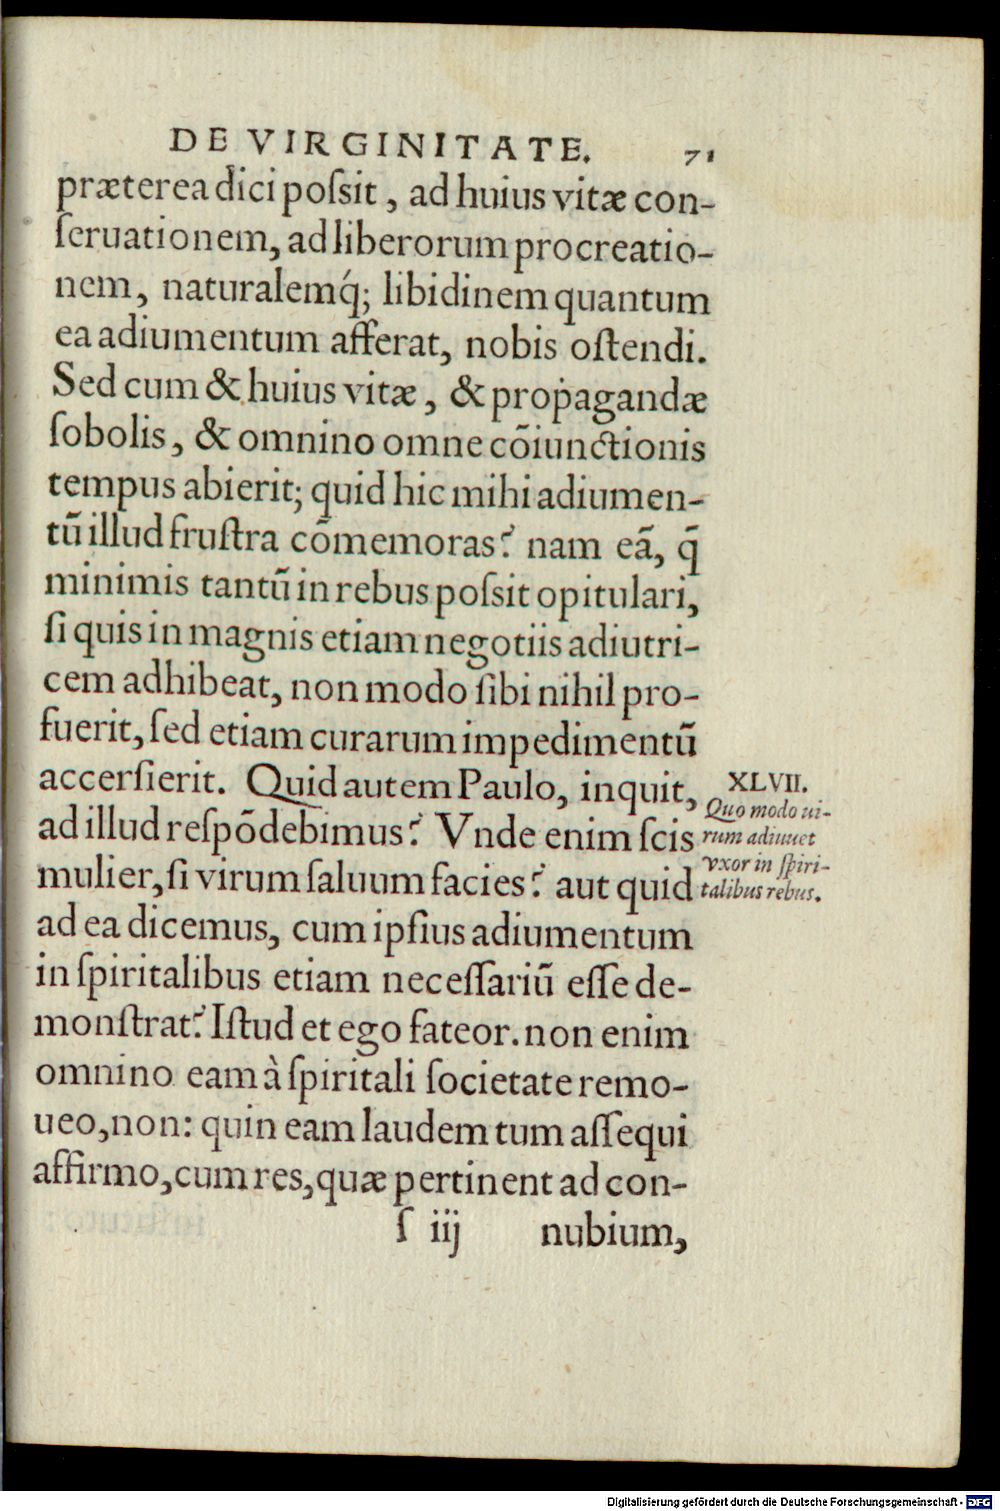 DE VIRGINITATE. 71
præterea dici poſsit, ad huius vitæ con-
ſeruationem, ad liberorum procreatio-
nem, naturalemq́; libidinem quantum
ea adiumentum afferat, nobis oſtendi.
Sed cum & huius vitæ, & propagandæ
ſobolis, & omnino omne cõiunctionis
tempus abierit; quid hic mihi adiumen-
tũ illud fruſtra cõmemoras? nam eã, q̃
minimis tantũ in rebus poſsit opitulari,
ſi quis in magnis etiam negotiis adiutri-
cem adhibeat, non modo ſibi nihil pro-
fuerit, ſed etiam curarum impedimentũ
accerſierit. Quid autem Paulo, inquit,
ad illud reſpõdebimus? Vnde enim ſcis
mulier, ſi virum ſaluum facies? aut quid
ad ea dicemus, cum ipſius adiumentum
in ſpiritalibus etiam neceſſariũ eſſe de-
monſtrat? Iſtud et ego fateor. non enim
omnino eam à ſpiritali ſocietate remo-
ueo, non: quin eam laudem tum aſſequi
affirmo, cum res, quæ pertinent ad con-
ſ iij nubium,
XLVII.
Quo modo ui-
rum adiuuet
vxor in ſpiri-
talibus rebus.
Digitalisierung gefördert durch die Deutsche Forschungsgemeinschaft - DFG